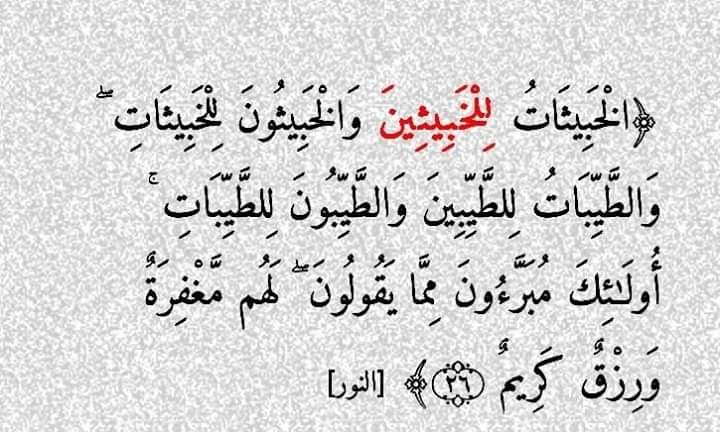 ﴿الْخَبِيثَاتُ لِلْخَبِيثِينَ وَالْخَبِيثُونَ لِلْخَبِيثَاتِ ۖ
وَالطَّيِّبَاتُ لِلطَّيِّبِينَ وَالطَّيِّبُونَ لِلطَّيِّبَاتِ ۚ
أُولَـٰئِكَ مُبَرَّءُونَ مِمَّا يَقُولُونَ ۖ لَهُم مَّغْفِرَةٌ
وَرِزْقٌ كَرِيمٌ ﴿٢٦﴾ [النور]